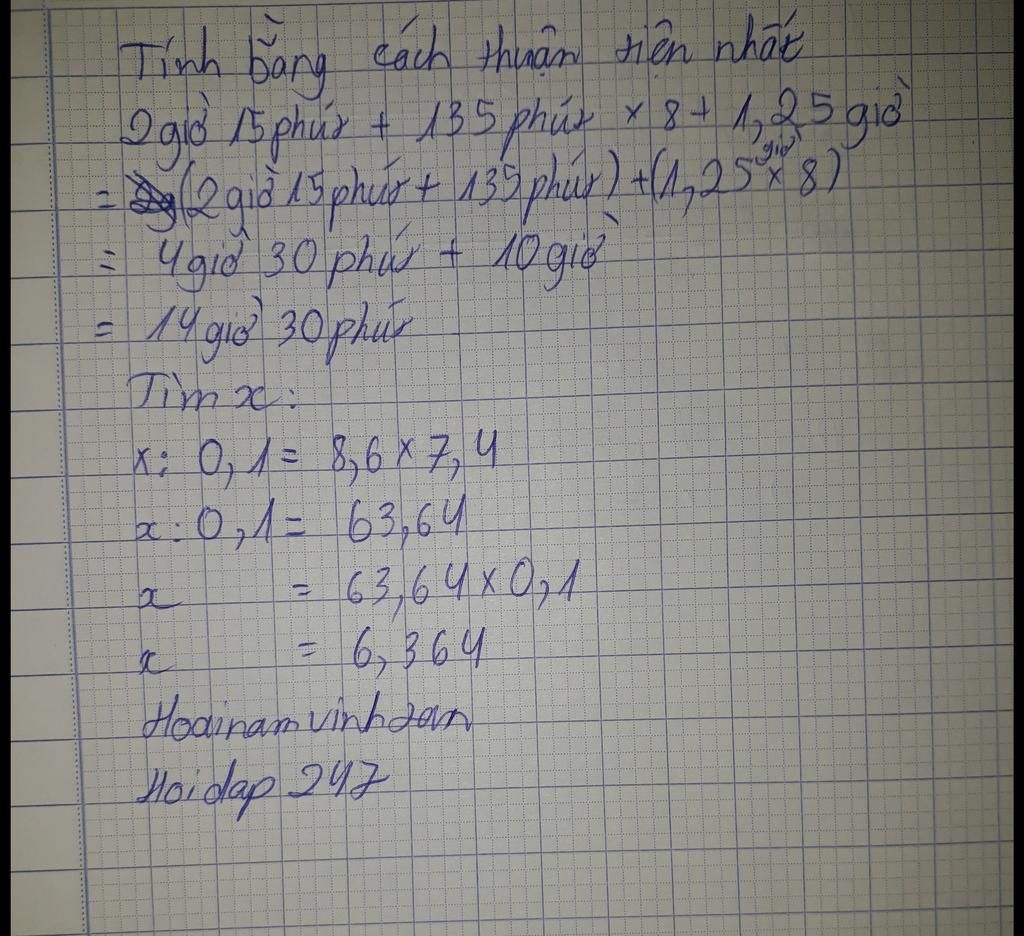 Tính bằng cách thuận tiện nhất
2 giờ 15 phút + 135 phút × 8 + 1,25 giờ
= (2 giờ 15 phút + 135 phút) + (1,25 giờ × 8)
= 4 giờ 30 phút + 10 giờ
= 14 giờ 30 phút
Tìm x:
x : 0,1 = 8,6 × 7,4
x : 0,1 = 63,64
x = 63,64 × 0,1
x = 6,364
Hoainamvinhdan
Hoidap 247